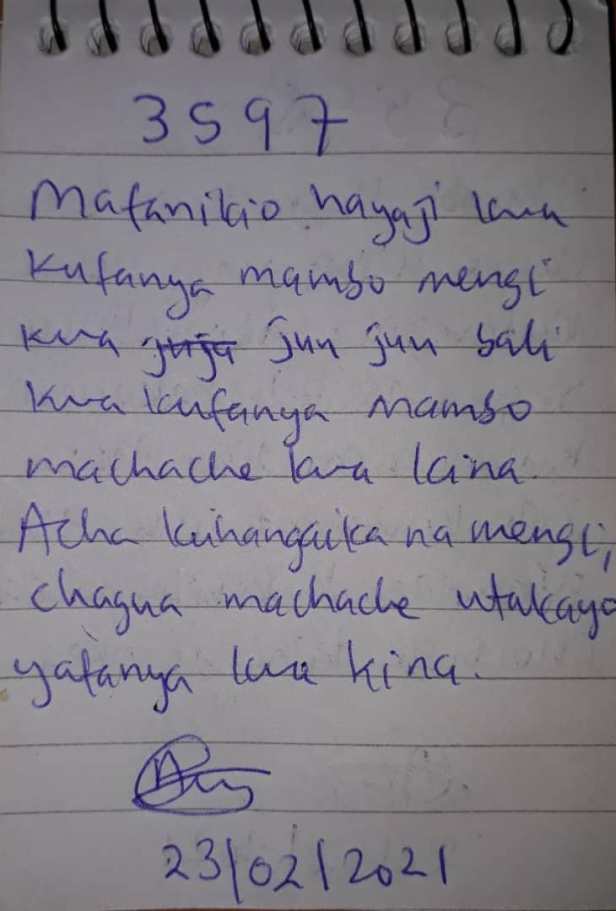 3597
Mafanikio hayaji kwa
kufanya mambo mengi
kwa juja juu juu bali
kwa kufanya mambo
machache kwa kina.
Acha kuhangaika na mengi,
chagua machache utakayo
yafanya kwa kina.
23/02/2021